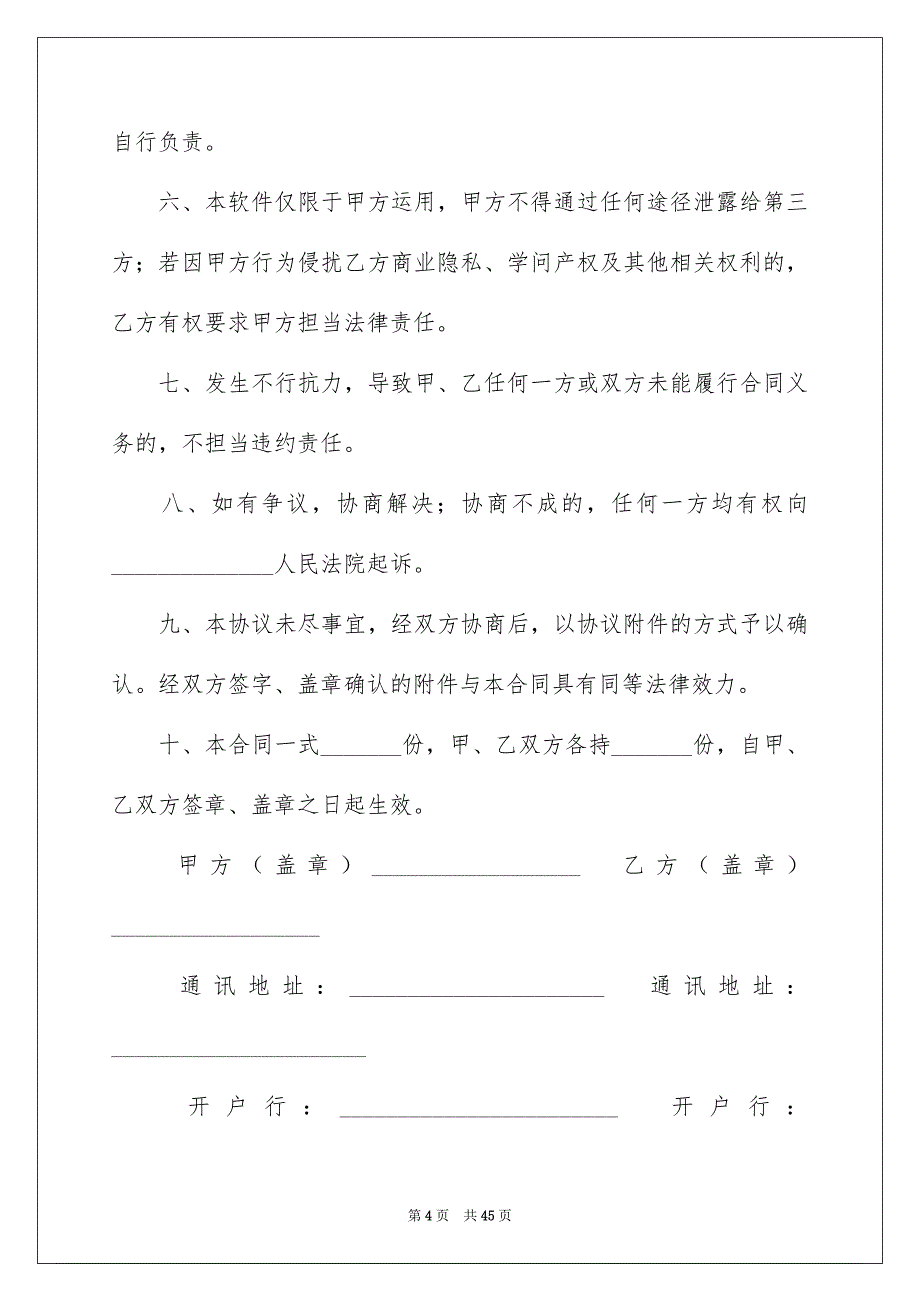 自行负责。
六、本软件仅限于甲方运用，甲方不得通过任何途径泄露给第三
方；若因甲方行为侵扰乙方商业隐私、学问产权及其他相关权利的，
乙方有权要求甲方担当法律责任。
七、发生不行抗力，导致甲、乙任何一方或双方未能履行合同义
务的，不担当违约责任。
八、如有争议，协商解决；协商不成的，任何一方均有权向
______________人民法院起诉。
九、本协议未尽事宜，经双方协商后，以协议附件的方式予以确
认。经双方签字、盖章确认的附件与本合同具有同等法律效力。
十、本合同一式_______份，甲、乙双方各持_______份，自甲、
乙双方签章、盖章之日起生效。
甲方（盖章）__________________ 乙方（盖章）
__________________
通讯地址：______________________ 通讯地址：
______________________
开户行：________________________ 开户行：
第 4 页 共 45 页